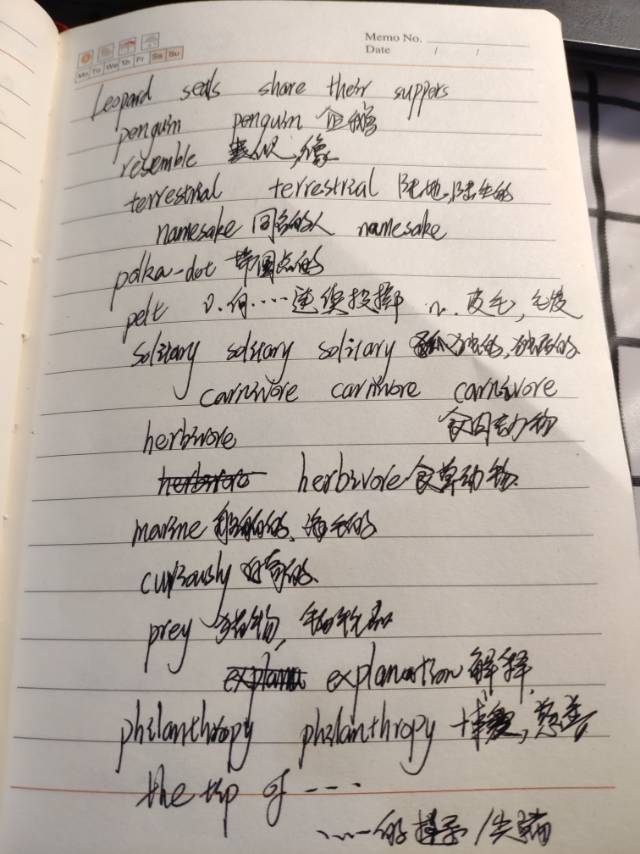 Memo No.
Date / /
Mo Tu We Th Fr Sa Su
Leopard seals share their suppers
penguin penguin 企鹅
resemble 类似,像
terrestrial terrestrial 陆地,陆生的
namesake 同名的人 namesake
polka-dot 带圆点的
pelt v.向……连续投掷 n.皮毛,毛皮
solitary solitary solitary 独居的
carnivore carnivore carnivore
herbivore 食肉动物
herbivore 食草动物
marine 海生的
curiously 好奇的
prey 猎物,
explanation 解释
philanthropy philanthropy 博爱,慈善
the tip of ----
……的 /尖端